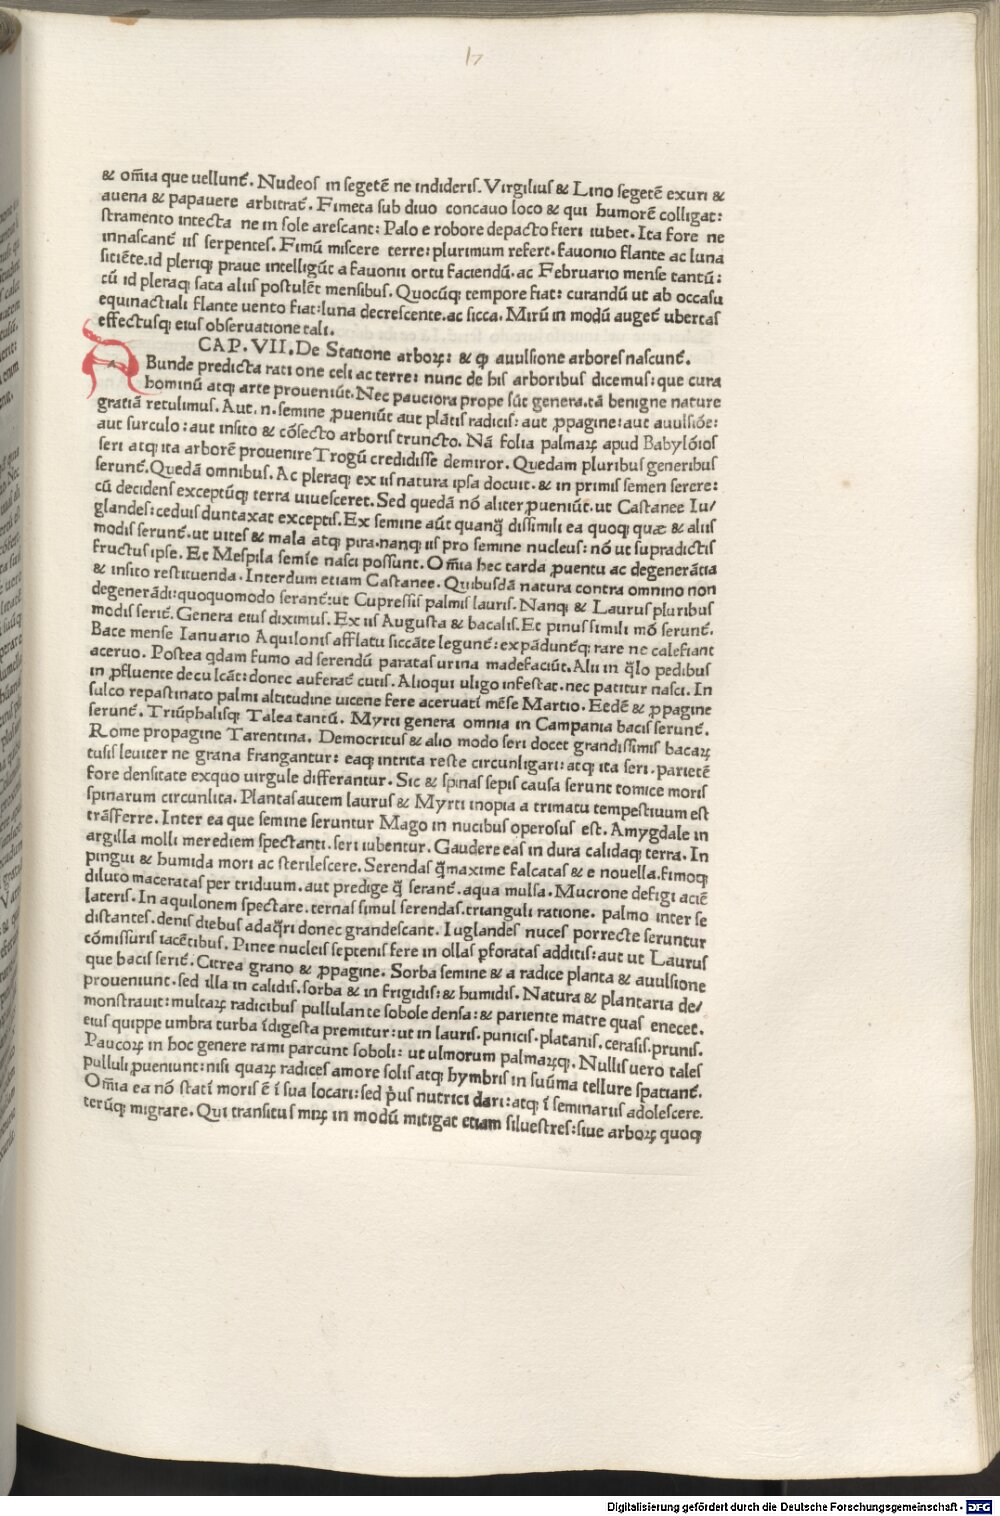 17
& om̄ia que uellunt᷑. Nudeos in segetē ne indideris. Virgilius & Lino segetē exuri &
auena & papauere arbitrat᷑. Fimeta sub diuo concauo loco & qui humorē colligat:
stramento intecta ne in sole arescant: Palo e robore depacto fieri iubet. Ita fore ne
innascant᷑ iis serpentes. Fimū miscere terre: plurimum refert. fauonio flante ac luna
sitiēte. id pleriqꝫ praue intelligūt a fauonii ortu faciendū. ac Februario mense tantū:
cū id pleraqꝫ sata aliis postulēt mensibus. Quocūqꝫ tempore fiat: curandū ut ab occasu
equinactiali flante uento fiat: luna decrescente. ac sicca. Mirū in modū auget᷑ ubertas
effectusqꝫ eius obseruatione tali.
CAP. VII. De Statione arboꝝ: & ꝙ auulsione arbores nascunt᷑.
ABunde predicta ratione celi ac terre: nunc de his arboribus dicemus: que cura
hominū atqꝫ arte proueniūt. Nec pauciora prope sūt genera. tā benigne nature
gratiā retulimus. Aut. n. semine ꝓueniūt aut plātis radicis: aut ꝓpagine: aut auulsiōe:
aut surculo: aut insito & cōsecto arboris truncto. Nā folia palmaꝝ apud Babylōios
seri atqꝫ ita arborē prouenire Trogū credidisse demiror. Quedam pluribus generibus
serunt᷑. Quedā omnibus. Ac pleraqꝫ ex iis natura ipsa docuit. & in primis semen serere:
cū decidens exceptūqꝫ terra uiuesceret. Sed quedā nō aliter ꝓueniūt. ut Castanee Iu/
glandes: ceduis duntaxat exceptis. Ex semine aūt quanqꝫ̄ dissimili ea quoqꝫ quæ & aliis
modis serunt᷑. ut uites & mala atqꝫ pira. nanqꝫ iis pro semine nucleus: nō ut supradictis
fructus ipse. Et Mespila semīe nasci possunt. Om̄ia hec tarda ꝓuentu ac degenerātia
& insito restituenda. Interdum etiam Castanee. Quibusdā natura contra omnino non
degenerādi: quoquomodo serant᷑: ut Cupressis palmis lauris. Nanqꝫ & Laurus pluribus
modis serit᷑. Genera eius diximus. Ex iis Augusta & bacalis. Et pinus simili mō serunt᷑.
Bace mense Ianuario Aquilonis afflatu siccāte legunt᷑: expādunt᷑qꝫ rare ne calefiant
aceruo. Postea qdam fumo ad serendū paratas urina madefaciūt. Alii in q̄lo pedibus
in ꝓfluente deculcāt: donec auferat᷑ cutis. Alioqui uligo infestat. nec patitur nasci. In
sulco repastinato palmi altitudine uicene fere aceruati mēse Martio. Eedē & ꝓpagine
serunt᷑. Triūphalisqꝫ Talea tantū. Myrti genera omnia in Campania bacis serunt᷑.
Rome propagine Tarentina. Democritus & alio modo seri docet grandissimis bacaꝝ
tusis leuiter ne grana frangantur: eaqꝫ intrita reste circunligari: atqꝫ ita seri. parietē
fore densitate exquo uirgule differantur. Sic & spinas sepis causa serunt tomice moris
spinarum circunlita. Plantas autem laurus & Myrti inopia a trimatu tempestiuum est
trāsferre. Inter ea que semine seruntur Mago in nucibus operosus est. Amygdale in
argilla molli merediem spectanti. seri iubentur. Gaudere eas in dura calidaqꝫ terra. In
pingui & humida mori ac sterilescere. Serendas q̄maxime falcatas & e nouella. fimoqꝫ
diluto maceratas per triduum. aut predige q̄ serant᷑. aqua mulsa. Mucrone defigi aciē
lateris. In aquilonem spectare. ternas simul serendas. trianguli ratione. palmo inter se
distantes. denis diebus adaq̄ri donec grandescant. Iuglandes nuces porrecte seruntur
cōmissuris iacētibus. Pinee nucleis septenis fere in ollas ꝑforatas additis: aut ut Laurus
que bacis serit᷑. Citrea grano & ꝓpagine. Sorba semine & a radice planta & auulsione
proueniunt. sed illa in calidis. sorba & in frigidis: & humidis. Natura & plantaria de/
monstrauit: multaꝝ radicibus pullulante sobole densa: & pariente matre quas enecet.
eius quippe umbra turba īdigesta premitur: ut in lauris. punicis. platanis. cerasis. prunis.
Paucoꝝ in hoc genere rami parcunt soboli: ut ulmorum palmaꝝqꝫ. Nullis uero tales
pulluli ꝓueniunt: nisi quaꝝ radices amore solis atqꝫ hymbris in suūma tellure spatiant᷑.
Om̄ia ea nō statī moris ē ī sua locari: sed p̄us nutrici dari: atqꝫ ī seminariis adolescere.
terūqꝫ migrare. Qui transitus miꝝ in modū mitigat etiam siluestres: siue arboꝝ quoqꝫ
Digitalisierung gefördert durch die Deutsche Forschungsgemeinschaft - DFG